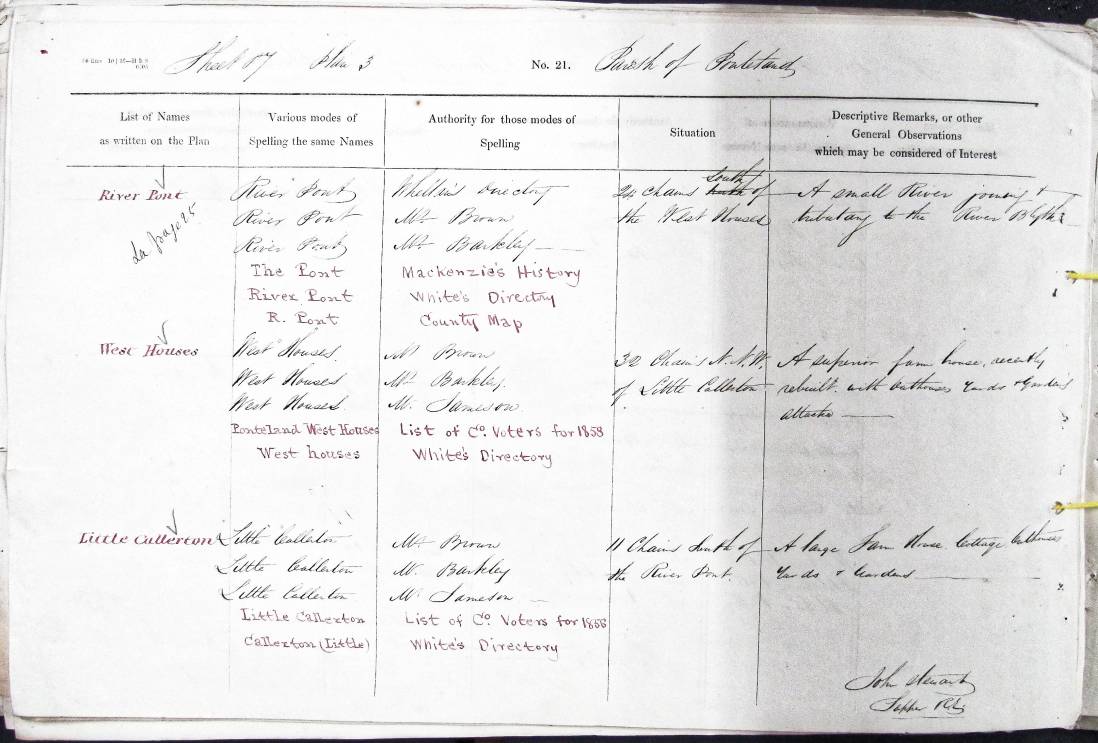 Sheet 87 Plan 3 No. 21. Parish of Ponteland
List of Names as written on the Plan
Various modes of Spelling the same Names
Authority for those modes of Spelling
Situation
Descriptive Remarks, or other General Observations which may be considered of Interest
River Pont River Pont Directory 24 Chains South of A small River joining &
River Pont Mr Brown the West Houses tributary to the River Blyth
River Pont Mr Barkley
The Pont Mackenzie's History
River Pont White's Directory
R. Pont County Map
page 25
West Houses West Houses. Mr Brown 32 Chains N.N.W. A superior farm house, recently
West Houses Mr Barkley. of Little Callerton rebuilt with Outhouses Yards & Gardens
West Houses. Mr Jameson attached
Ponteland West Houses List of Co. Voters for 1858
West houses White's Directory
Little Callerton Little Callerton Mr Brown 11 Chains South of A large Farm House Cottage Outhouses
Little Callerton Mr Barkley the River Pont. Yards & Gardens
Little Callerton Mr Jameson
Little Callerton List of Co. Voters for 1858
Callerton (Little) White's Directory
John Stewart
Sapper R.E.